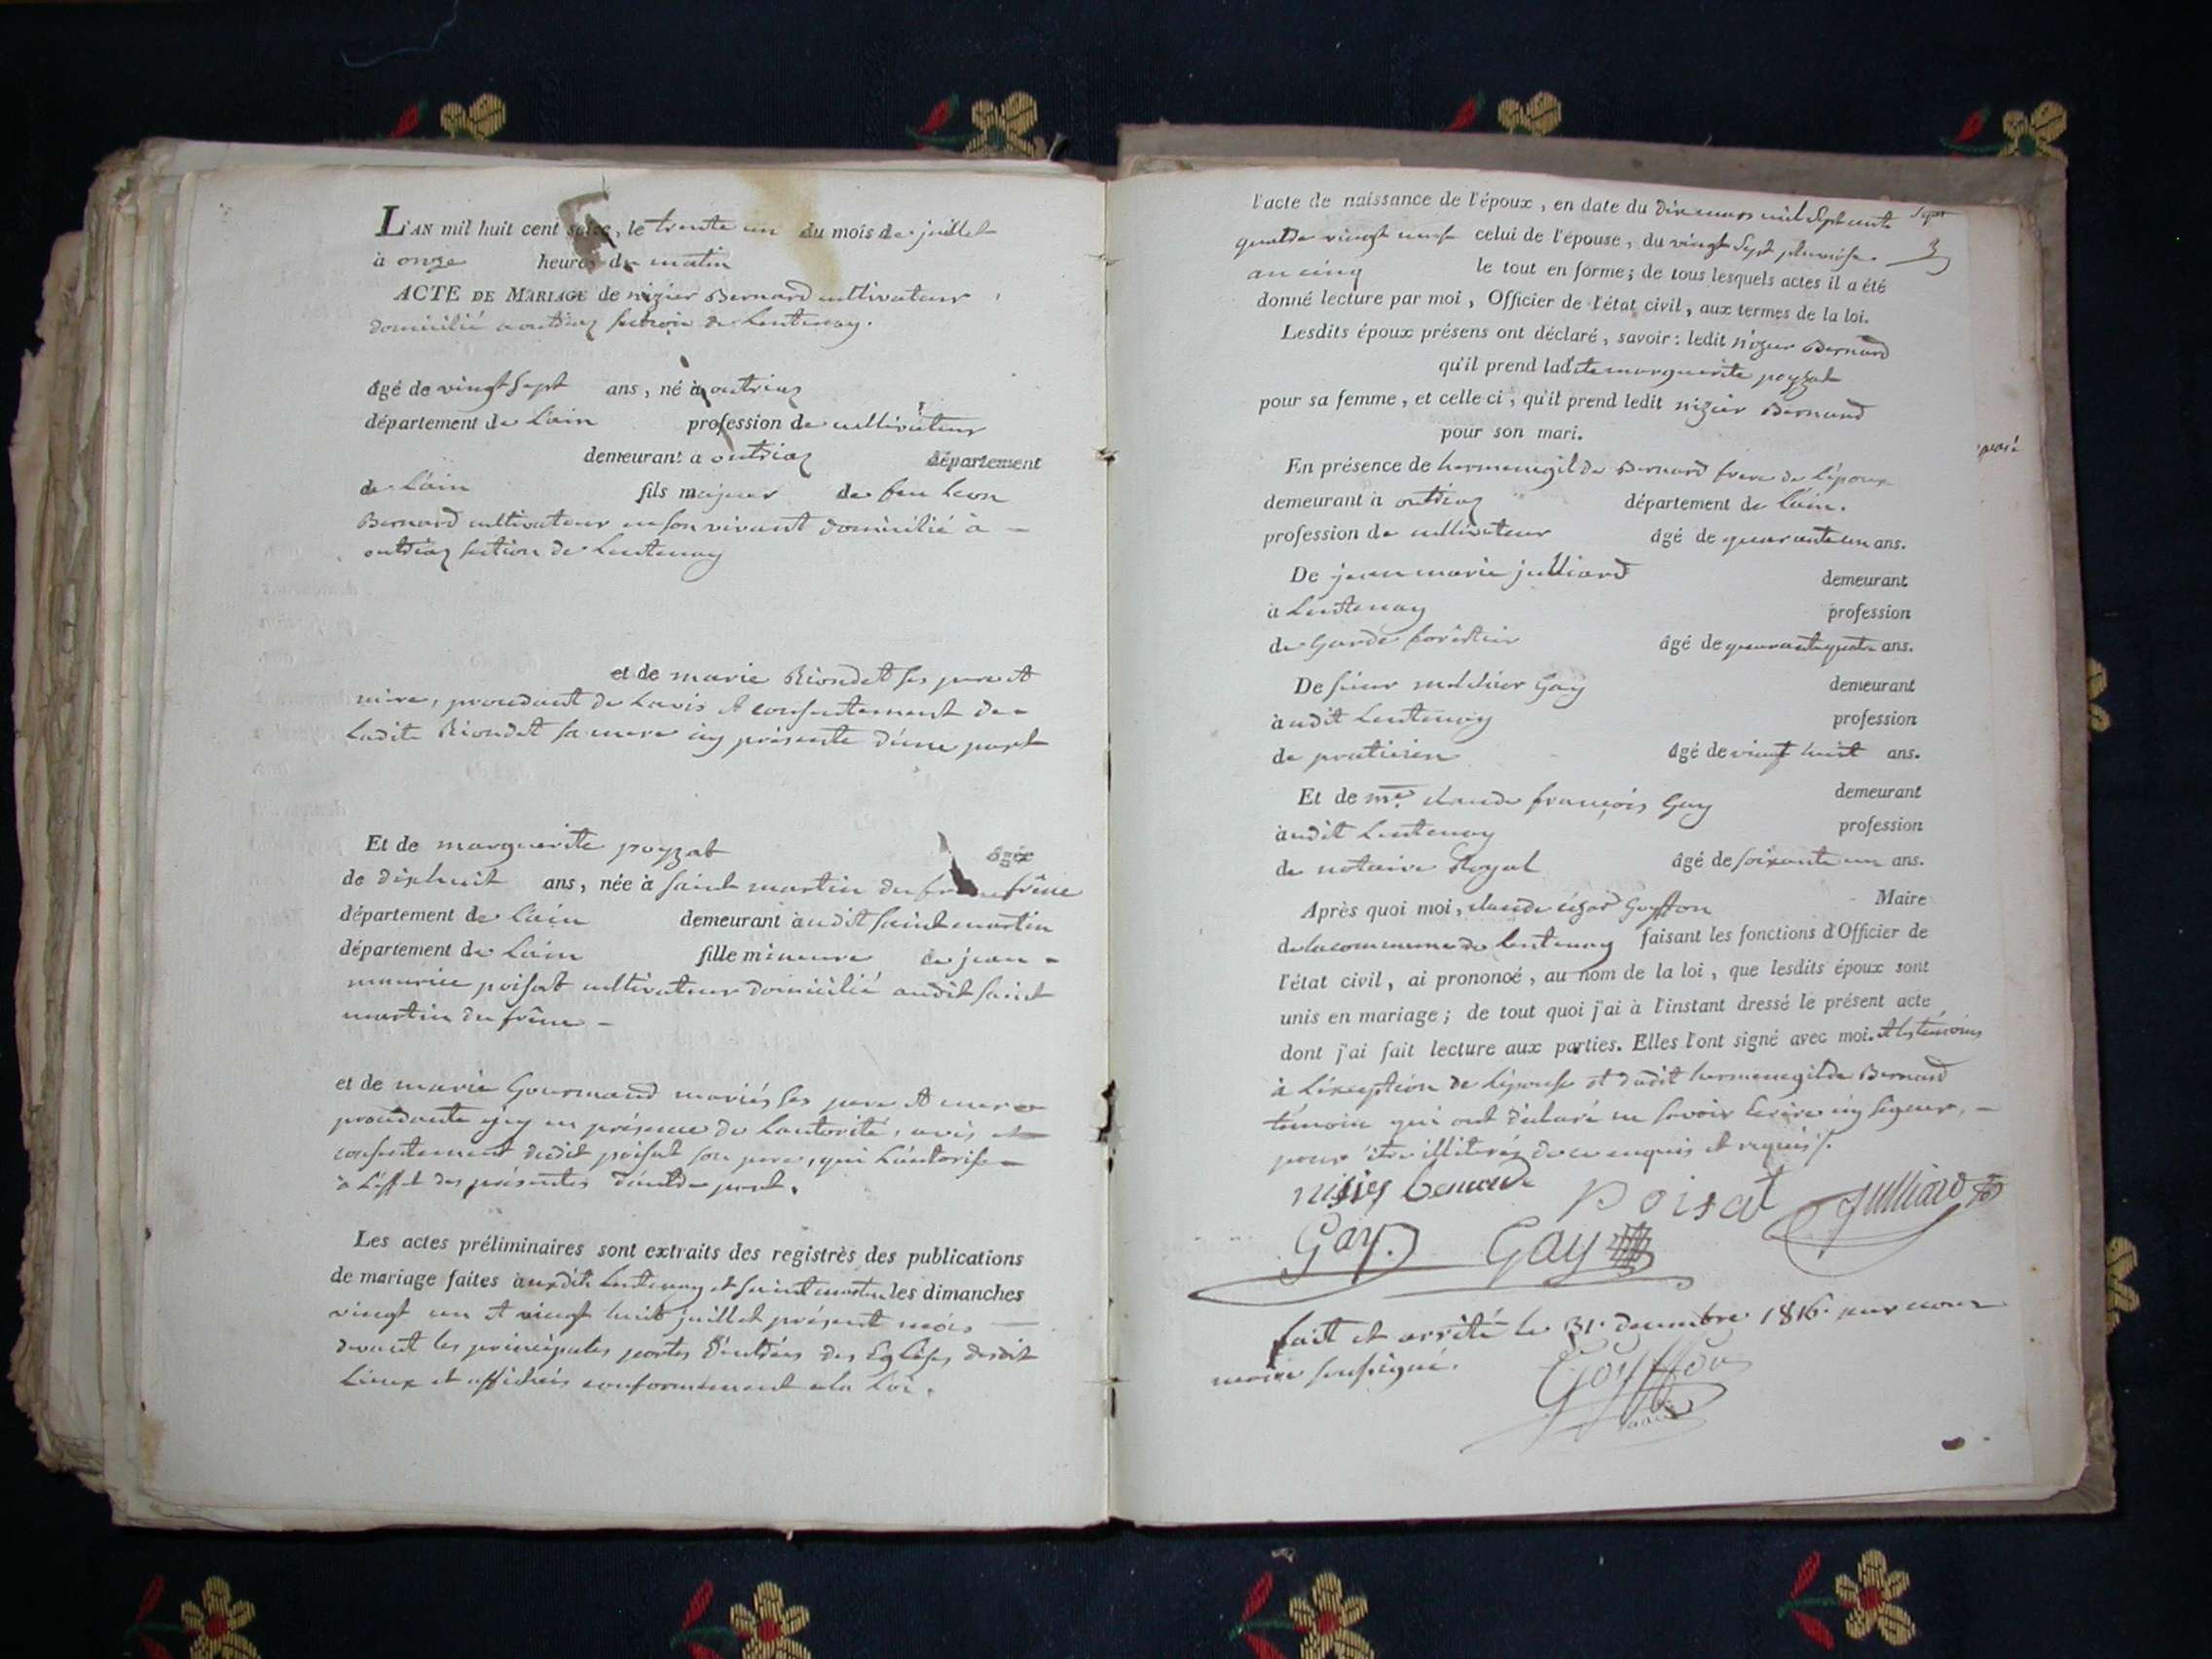 L'AN mil huit cent seize, le trente un du mois de juillet
à onze heures du matin
ACTE DE MARIAGE de nizier Bernard cultivateur
domicilié a outriaz section de Lentenay.
âgé de vingt sept ans, né à outriaz
département de L'ain profession de cultivateur
demeurant a outriaz département
de L'ain fils majeur de feu Leon
Bernard cultivateur en son vivant domicilié à -
outriaz section de Lentenay
et de marie Riondet ses pere et
mere, procedant de Lavis et consentement de
Ladite Riondet sa mere icy présente d'une part
Et de marguerite poyzat âgée
de dixhuit ans, née à saint martin du frêne
département de L'ain demeurant audit saint martin
département de L'ain fille mineure de jean -
maurice poisat cultivateur domicilié audit saint
martin du frêne -
et de marie Gourmand mariés ses pere et mere
procedante icy en présence de Lautorité, avis et
consentement dudit poisat son pere, qui L'autorise
à L'effet des présentes d'autre part.
Les actes préliminaires sont extraits des registrès des publications
de mariage faites auxdits Lentenay et saint martin les dimanches
vingt un et vingt huit juillet présent mois
devant les principales portes d'entrées des Eglises desdit
Lieux et affichés conformément a la Loi.
l'acte de naissance de l'époux, en date du dix mars mil sept cente
quatre vingt neuf celui de l'épouse, du vingt sept pluviose
an cinq le tout en forme; de tous lesquels actes il a été
donné lecture par moi, Officier de l'état civil, aux termes de la loi.
Lesdits époux présens ont déclaré, savoir: ledit nizier Bernard
qu'il prend ladite marguerite poyzat
pour sa femme, et celle ci, qu'il prend ledit nizier Bernard
pour son mari.
En présence de hermenegilde Bernard frere de l'époux
demeurant à outriaz département de L'ain.
profession de cultivateur âgé de quarante un ans.
De jean marie julliard demeurant
à Lentenay profession
de Garde forêstier âgé de quarante quatre ans.
De sieur melchior Gay demeurant
audit Lentenay profession
de praticien âgé de vingt huit ans.
Et de me. claude françois Gay demeurant
audit Lentenay profession
de notaire Royal âgé de soixante un ans.
Après quoi moi, claude Goyffon Maire
de la commune de Lentenay faisant les fonctions d'Officier de
l'état civil, ai prononcé, au nom de la loi, que lesdits époux sont
unis en mariage; de tout quoi j'ai à l'instant dressé le présent acte
dont j'ai fait lecture aux parties. Elles l'ont signé avec moi. et les témoins
à L'éxception de L'épouse et dudit hermenegilde Bernard
témoin qui ont déclaré ne savoir Ecrire ny signer, -
pour être illiterés de ce enquis et requis.
nisier benard poisat Julliard
Gay. Gay
fait et arrêté le 31 decembre 1816. par nous
maire soussigné.
Goyffon
maire